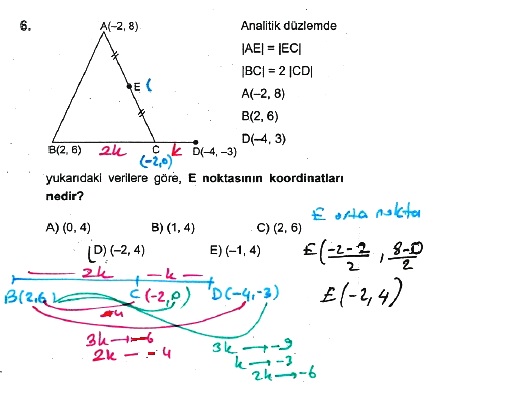 6.
A(–2, 8)
E (
B(2, 6) 2k C k D(–4, –3)
(-2,0)
Analitik düzlemde
|AE| = |EC|
|BC| = 2 |CD|
A(–2, 8)
B(2, 6)
D(–4, 3)
yukarıdaki verilere göre, E noktasının koordinatları
nedir?
A) (0, 4) B) (1, 4) C) (2, 6)
D) (–2, 4) E) (–1, 4)
E orta nokta
E(-2-2/2, 8-0/2)
E(-2,4)
2k k
B(2,6) C(-2,0) D(-4,-3)
-4
3k → -6
2k → -4
3k → -9
k → -3
2k → -6